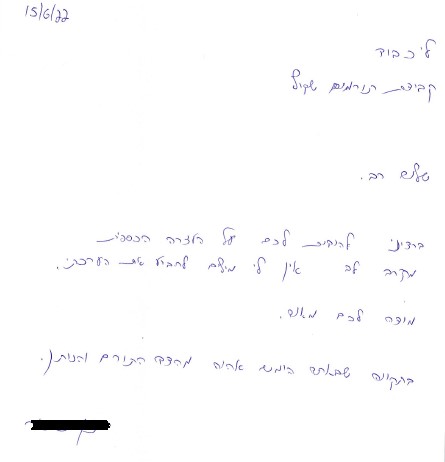 15/6/22
לכבוד
קבוצת תורמים שקוף
שלום רב.
ברצוני להודות לכם על העזרה הכספית
מקרב לב אין לי מילים להביע את הערכתי.
מודה לכם מאוד.
בתקווה שבאחד הימים אהיה מהצד התורם והנותן.